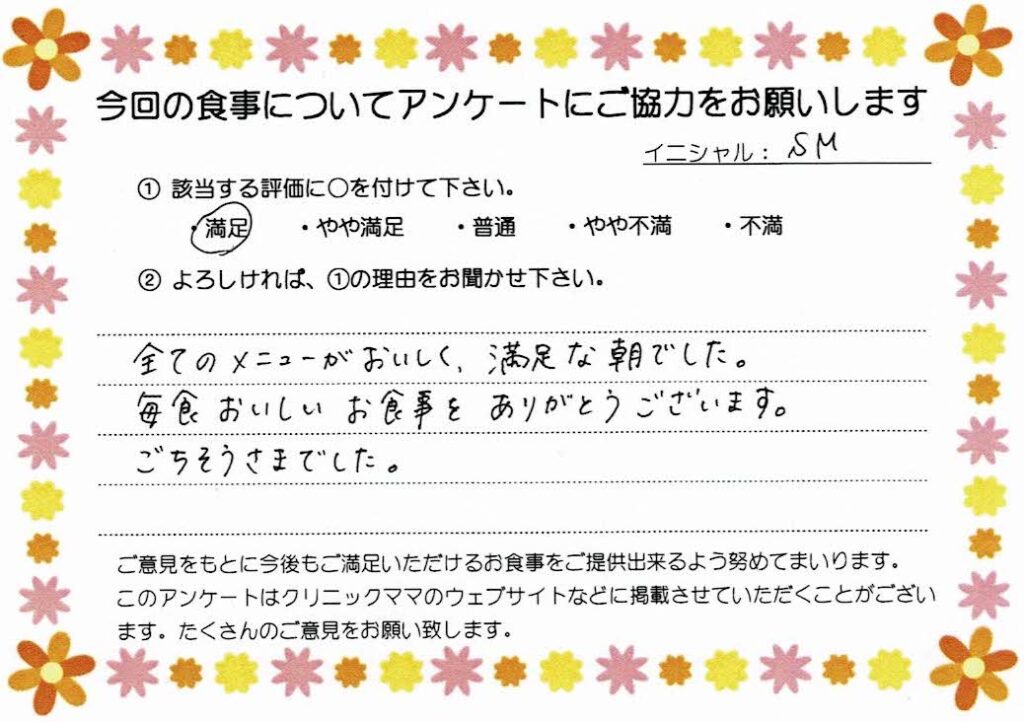 今回の食事についてアンケートにご協力をお願いします
イニシャル： SM
① 該当する評価に○を付けて下さい。
・満足 ・やや満足 ・普通 ・やや不満 ・不満
② よろしければ、①の理由をお聞かせ下さい。
全てのメニューがおいしく、満足な朝でした。
毎食おいしいお食事をありがとうございます。
ごちそうさまでした。
ご意見をもとに今後もご満足いただけるお食事をご提供出来るよう努めてまいります。
このアンケートはクリニックママのウェブサイトなどに掲載させていただくことがござい
ます。たくさんのご意見をお願い致します。